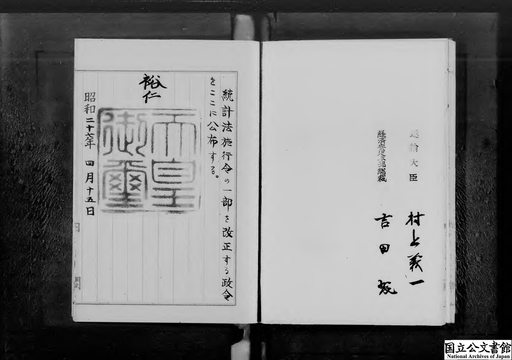 運輸大臣
村上義一
経済安定本部総裁
吉田茂
統計法施行令の一部を改正する政令
をここに公布する。
裕仁
天皇御璽
昭和二十七年 四月十五日
国立公文書館
National Archives of Japan